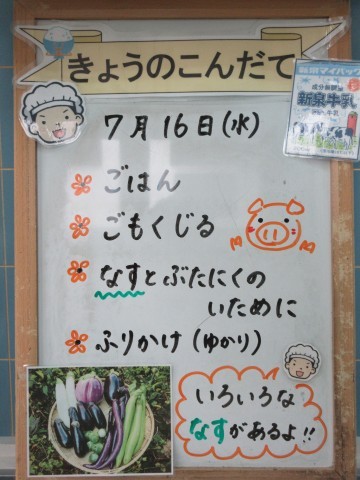 きょうのこんだて
7月16日(水)
ごはん
ごもくじる
なすとぶたにくの
いために
ふりかけ(ゆかり)
いろいろな
なすがあるよ!!
新泉牛乳